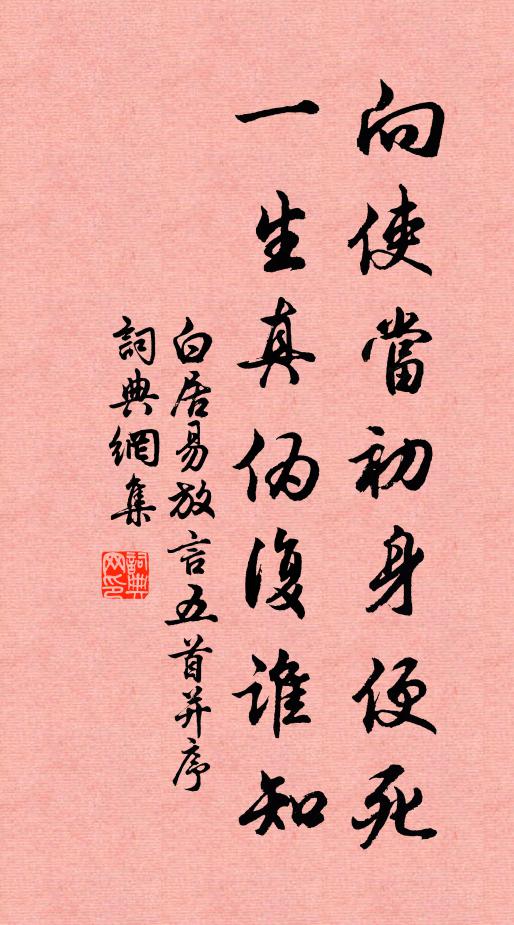 向使當初身便死
一生真伪復誰知
白居易放言五首并序
詞典網集
詞典网印